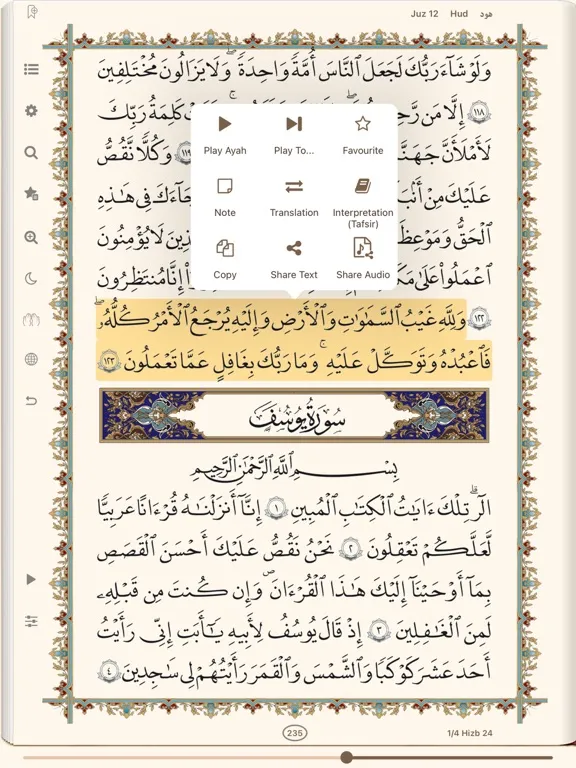 Juz 12 Hud هود
وَلَوْ شَآءَ رَبُّكَ لَجَعَلَ ٱلنَّاسَ أُمَّةً وَٰحِدَةً ۖ وَلَا يَزَالُونَ مُخْتَلِفِينَ
١١٨ إِلَّا مَن رَّحِمَ كَلِمَةُ رَبِّكَ
لَأَمْلَأَنَّ جَهَنَّمَ ١١٩ وَكُلًّا نَّقُصُّ
عَلَيْكَ مِنْ أَنۢبَآءِ جَآءَكَ فِى هَـٰذِهِ
ٱلْحَقُّ وَمَوْعِظَةٌ لِّلَّذِينَ لَا يُؤْمِنُونَ
ٱعْمَلُوا۟ عَلَىٰ إِنَّا مُنتَظِرُونَ
Play Ayah Play To... Favourite
Note Translation Interpretation
(Tafsir)
Copy Share Text Share Audio
١٢٢ وَلِلَّهِ غَيْبُ ٱلسَّمَـٰوَٰتِ وَٱلْأَرْضِ وَإِلَيْهِ يُرْجَعُ ٱلْأَمْرُ كُلُّهُۥ
فَٱعْبُدْهُ وَتَوَكَّلْ عَلَيْهِ ۚ وَمَا رَبُّكَ بِغَـٰفِلٍ عَمَّا تَعْمَلُونَ ١٢٣
سُورَةُ يُوسُفَ
بِسْمِ ٱللَّهِ ٱلرَّحْمَـٰنِ ٱلرَّحِيمِ
الٓر ۚ تِلْكَ ءَايَـٰتُ ٱلْكِتَـٰبِ ٱلْمُبِينِ ١ إِنَّآ أَنزَلْنَـٰهُ قُرْءَٰنًا عَرَبِيًّا
لَّعَلَّكُمْ تَعْقِلُونَ ٢ نَحْنُ نَقُصُّ عَلَيْكَ أَحْسَنَ ٱلْقَصَصِ
بِمَآ أَوْحَيْنَآ إِلَيْكَ هَـٰذَا ٱلْقُرْءَانَ وَإِن كُنتَ مِن قَبْلِهِۦ
لَمِنَ ٱلْغَـٰفِلِينَ ٣ إِذْ قَالَ يُوسُفُ لِأَبِيهِ يَـٰٓأَبَتِ إِنِّى رَأَيْتُ
أَحَدَ عَشَرَ كَوْكَبًا وَٱلشَّمْسَ وَٱلْقَمَرَ رَأَيْتُهُمْ لِى سَـٰجِدِينَ ٤
235 1/4 Hizb 24